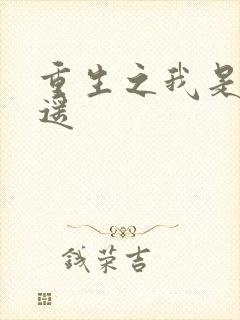 重生之我是
遥
钱荣吉